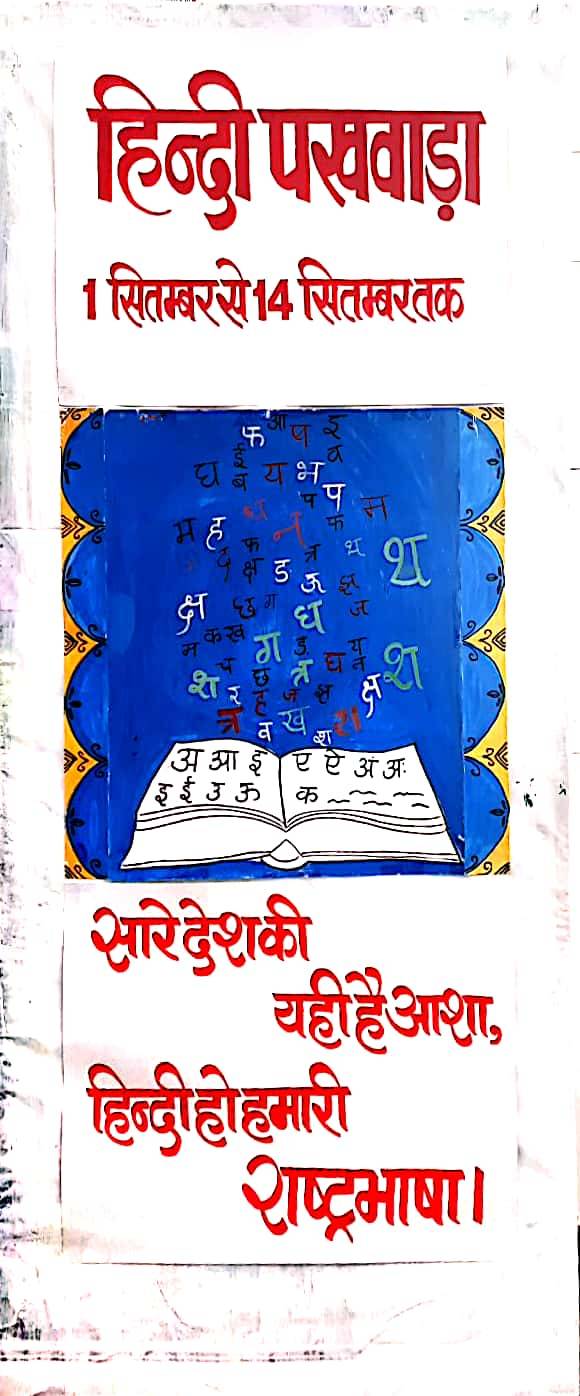 हिन्दी पखवाड़ा
1 सितम्बर से 14 सितम्बर तक
फ आ ष इ
घ ई ब य भ व
प प
म ह फ म
द क्ष ङ ऊ त्र थ थ
क्ष छ ग ध ज
म क ख ग ङ य
च छ त्र घ न
श र ह ज क्ष क्ष श
त्र व ख श
अ आ इ
इ ई उ ऊ
ए ऐ अं अः
क
सारे देश की
यही है आशा,
हिन्दी हो हमारी
राष्ट्रभाषा।